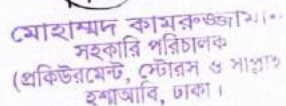 মোহাম্মদ কামরুজ্জামান
সহকারি পরিচালক
(প্রকিউরমেন্ট, স্টোরস ও সাপ্লাই
হশাআবি, ঢাকা।